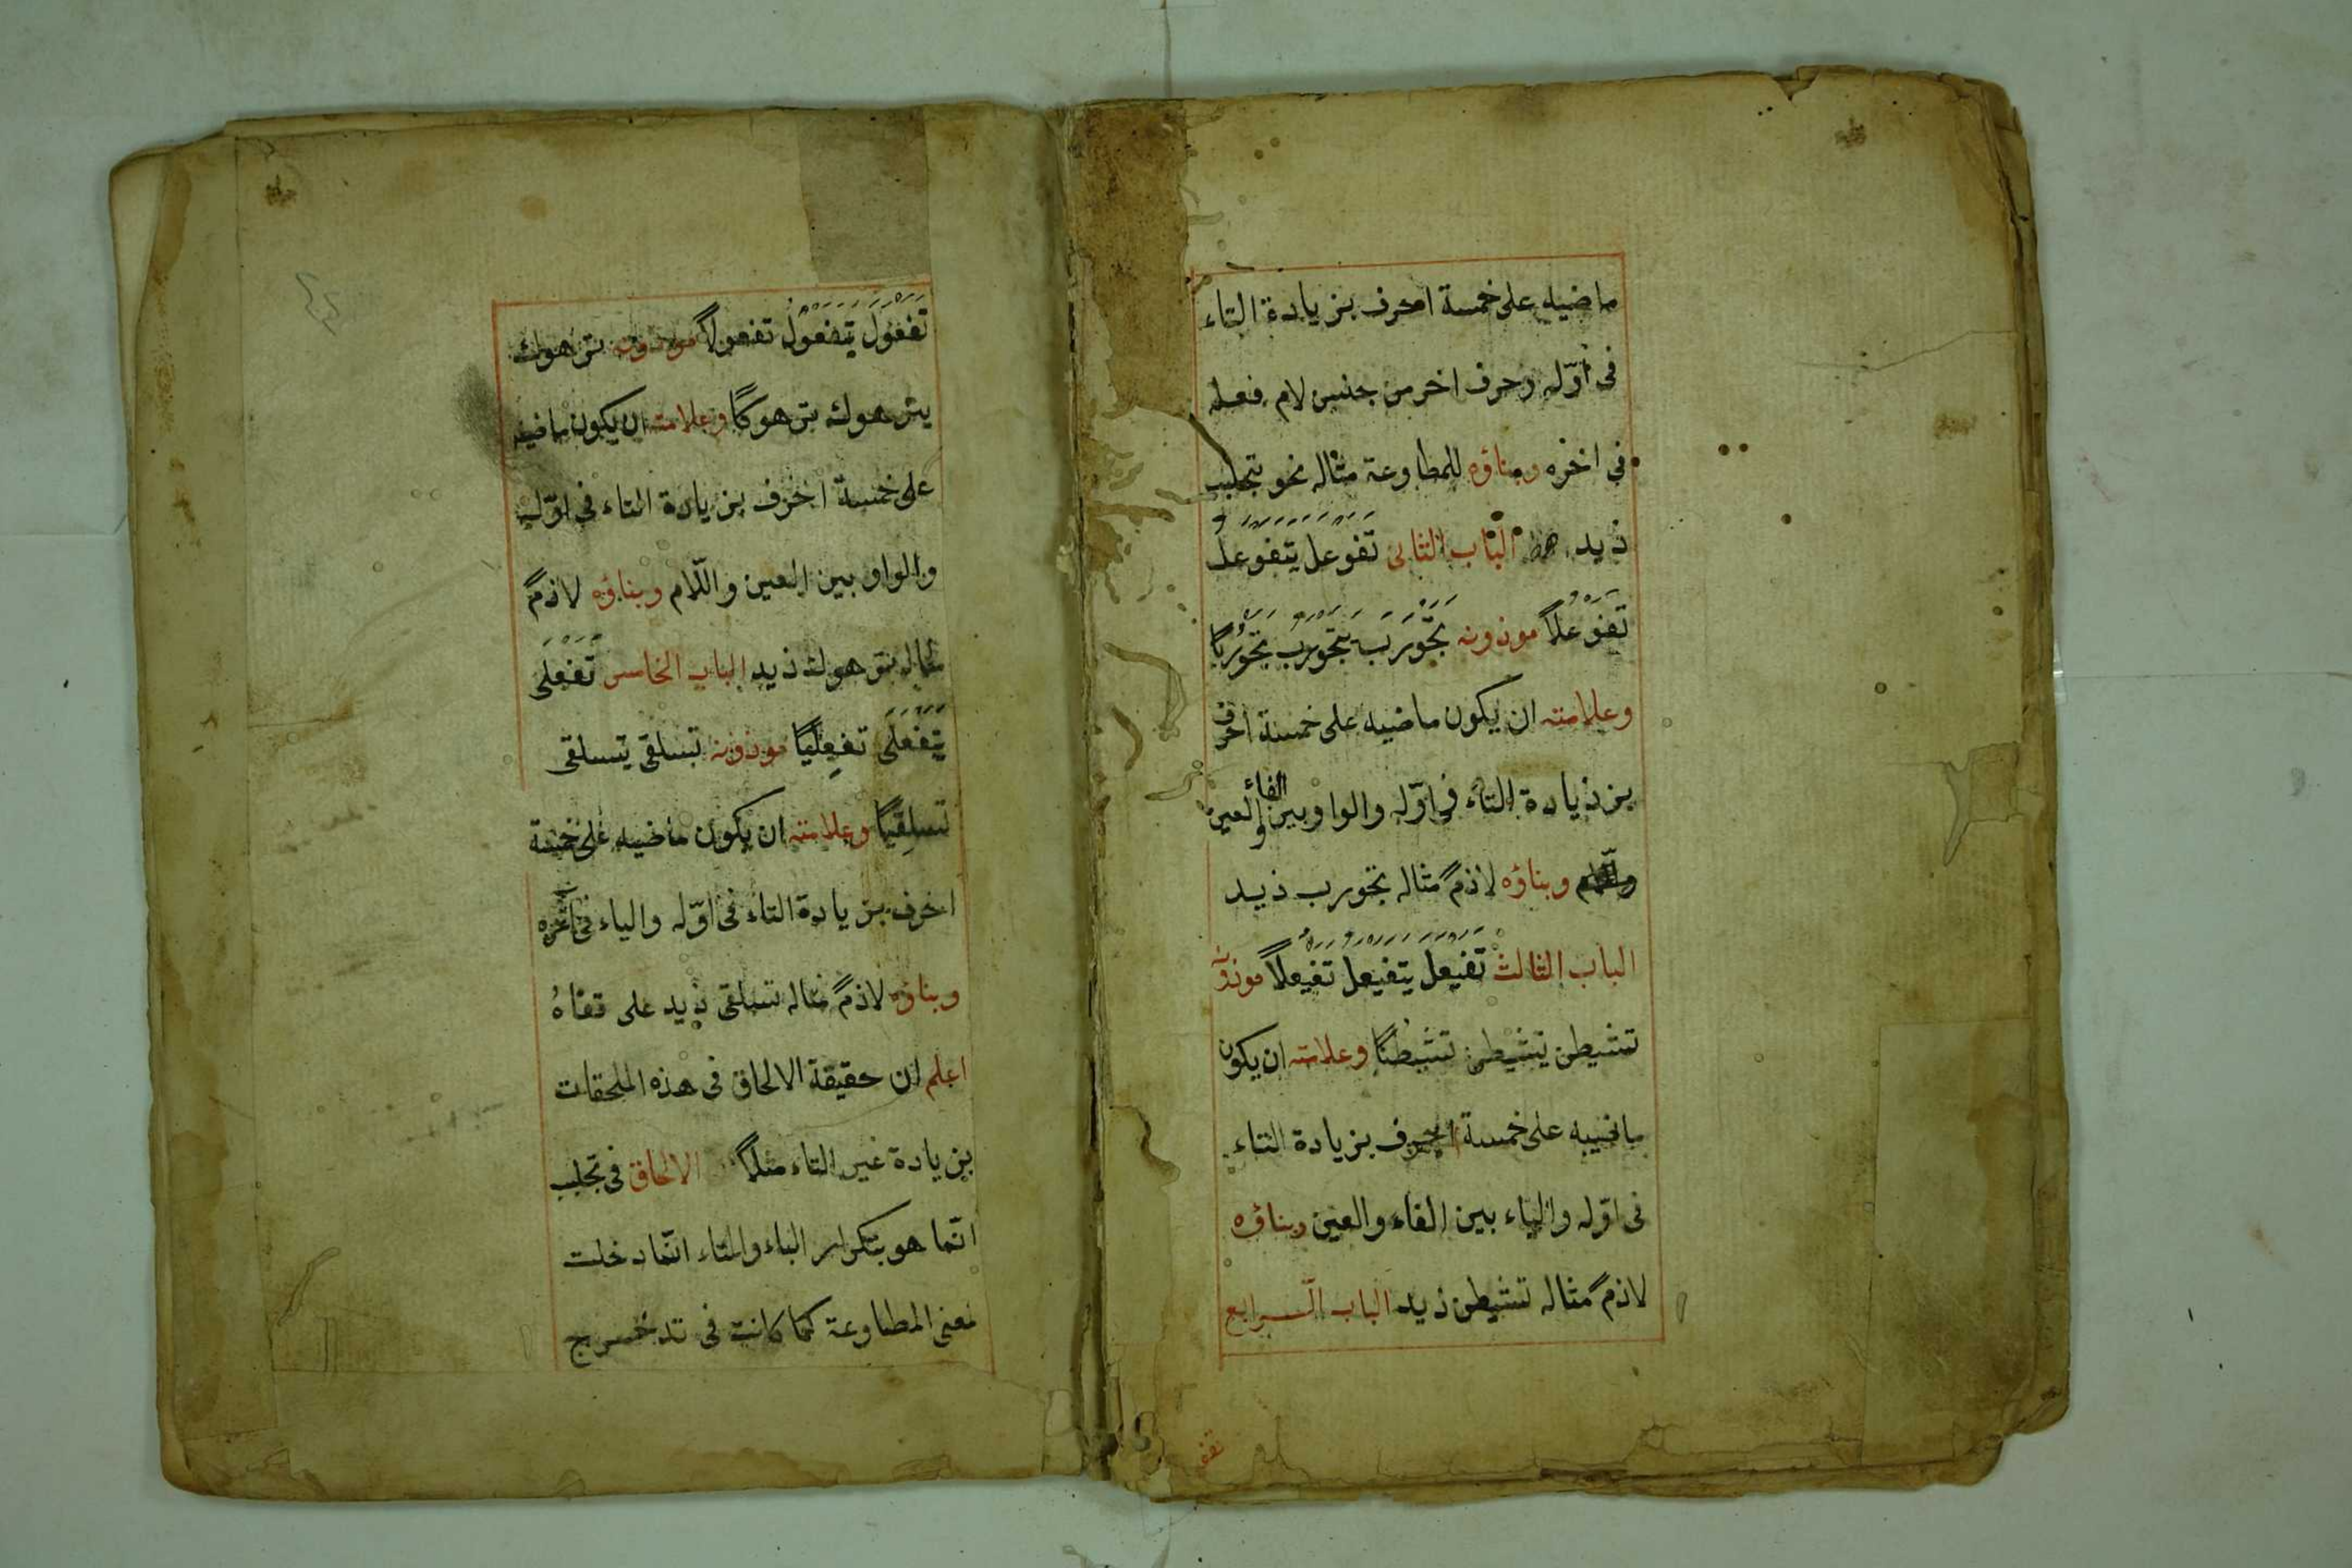 ماضيه على خمسة احرف بزيادة التاء
فى اوّله وحرف اخر من جنس لام فعله
فى اخره وبناؤه للمطاوعة مثاله نحو تجلبب
زيد الباب الثانى تَفَوْعَلَ يَتَفَوْعَلُ
تَفَوْعُلاً موزونه تَجَوْرَبَ يَتَجَوْرَبُ تَجَوْرُبًا
وعلامته ان يكون ماضيه على خمسة احرف
بزيادة التاء فى اوّله والواو بين الفاء والعين
وبناؤه لازمٌ مثاله تجورب زيد
الباب الثالث تَفَيْعَلَ يَتَفَيْعَلُ تَفَيْعُلاً موزونه
تشيطن يتشيطن تشيطنًا وعلامته ان يكون
ماضيه على خمسة احرف بزيادة التاء
فى اوّله والياء بين الفاء والعين وبناؤه
لازمٌ مثاله تشيطن زيد الباب الرابع
تفع
تَفَعْوَلَ يَتَفَعْوَلُ تفعولاً موزونه ترهوك
يترهوك ترهوكًا وعلامته ان يكون ماضيه
على خمسة احرف بزيادة التاء فى اوّله
والواو بين العين واللّام وبناؤه لازمٌ
مثاله ترهوك زيد الباب الخامس تَفَعْلَى
يَتَفَعْلَى تفعلِيًا موزونه تسلقى يتسلقى
تسلقِيًا وعلامته ان يكون ماضيه على خمسة
احرف بزيادة التاء فى اوّله والياء فى اخره
وبناؤه لازمٌ مثاله تسلقى زيد على قفاهُ
اعلم ان حقيقة الالحاق فى هذه الملحقات
بزيادة غير التاء مثلاً الالحاق فى تجلبب
انّما هو بتكرار الباء والتاء انّما دخلت
لمعنى المطاوعة كما كانت فى تدحرج